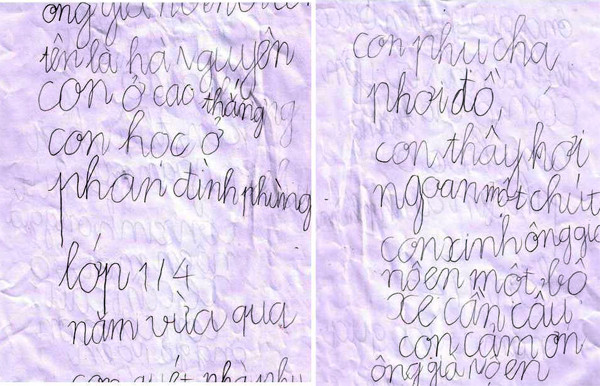 tên là hà nguyên
con ở cao thắng
con học ở
phan đình phùng
lớp 1/4
năm vừa qua
con quét nhà phụ
con phụ cha
phơi đồ,
con thấy hơi
ngoan một chút
con xin hông già
nô en một bộ
xe cần cẩu
con cảm ơn
ông già nô en